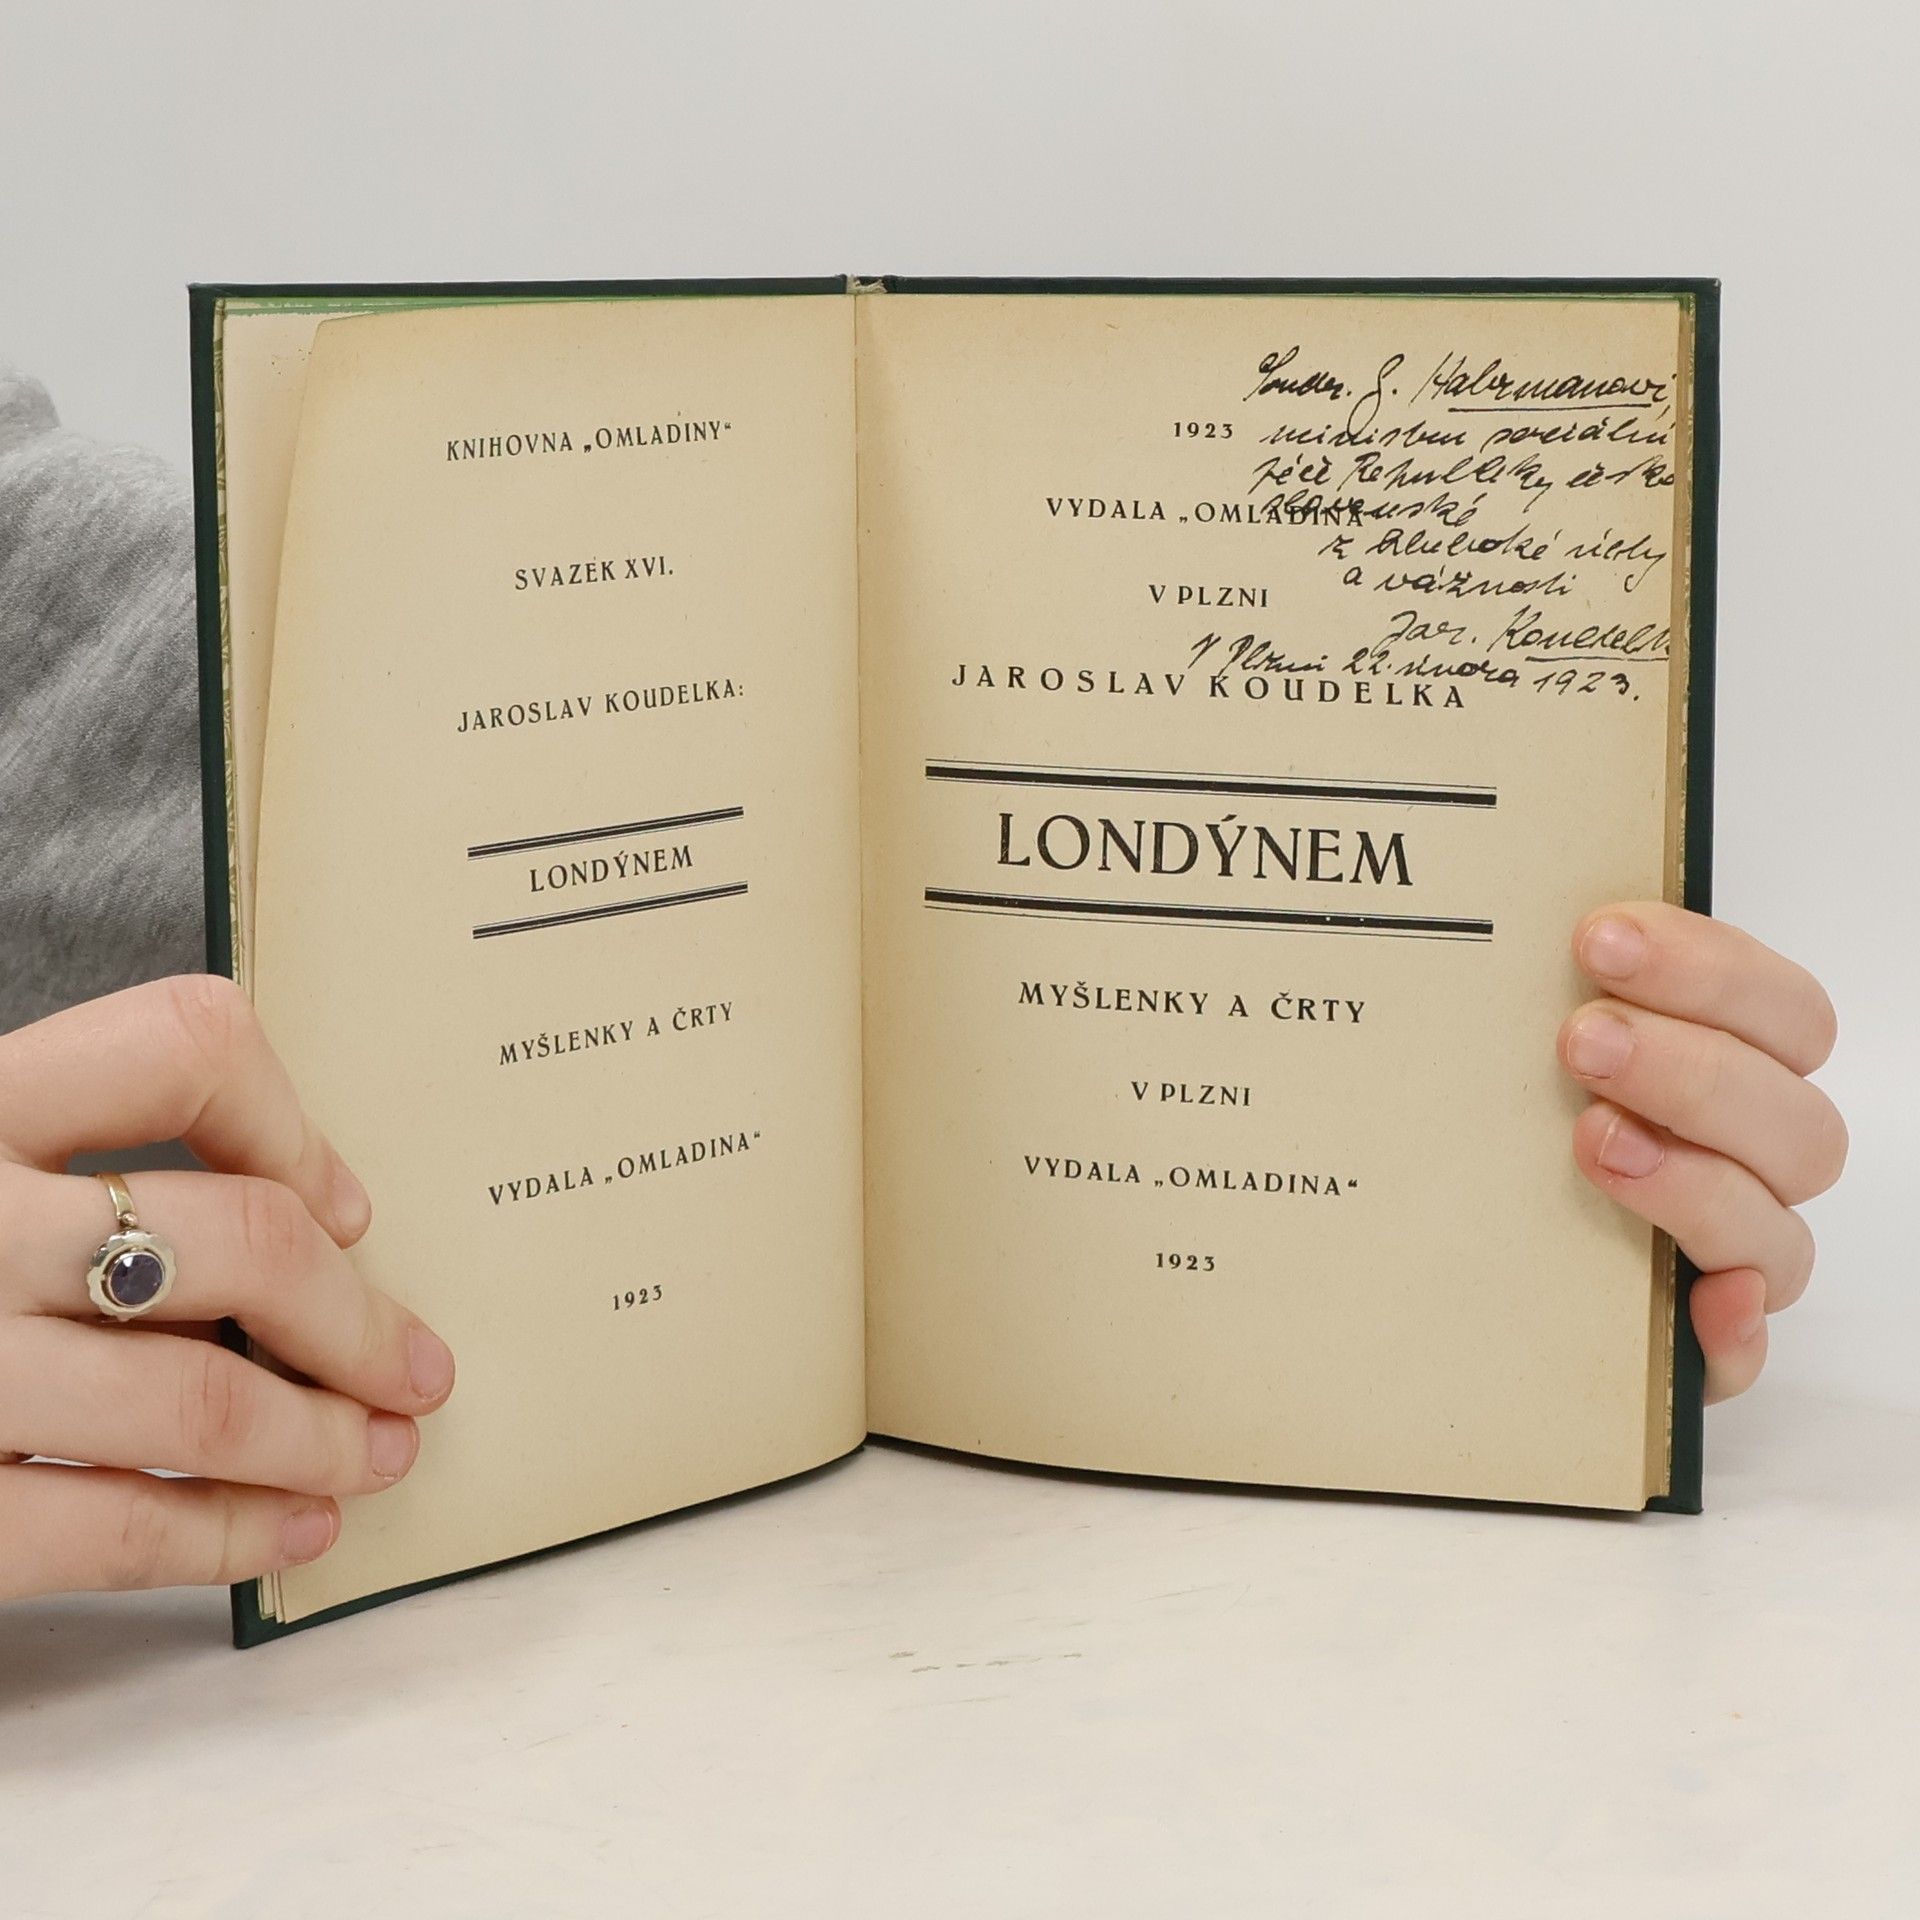 KNIHOVNA „OMLADINY“
SVAZEK XVI.
JAROSLAV KOUDELKA:
LONDÝNEM
MYŠLENKY A ČRTY
VYDALA „OMLADINA“
1923
Soudr. G. Habrmanovi,
ministru sociální
péče Republiky česko
slovenské
z hluboké úcty
a vážnosti
Jar. Koudelka
V Plzni 22. února 1923.
1923
VYDALA „OMLADINA“
V PLZNI
JAROSLAV KOUDELKA
LONDÝNEM
MYŠLENKY A ČRTY
V PLZNI
VYDALA „OMLADINA“
1923